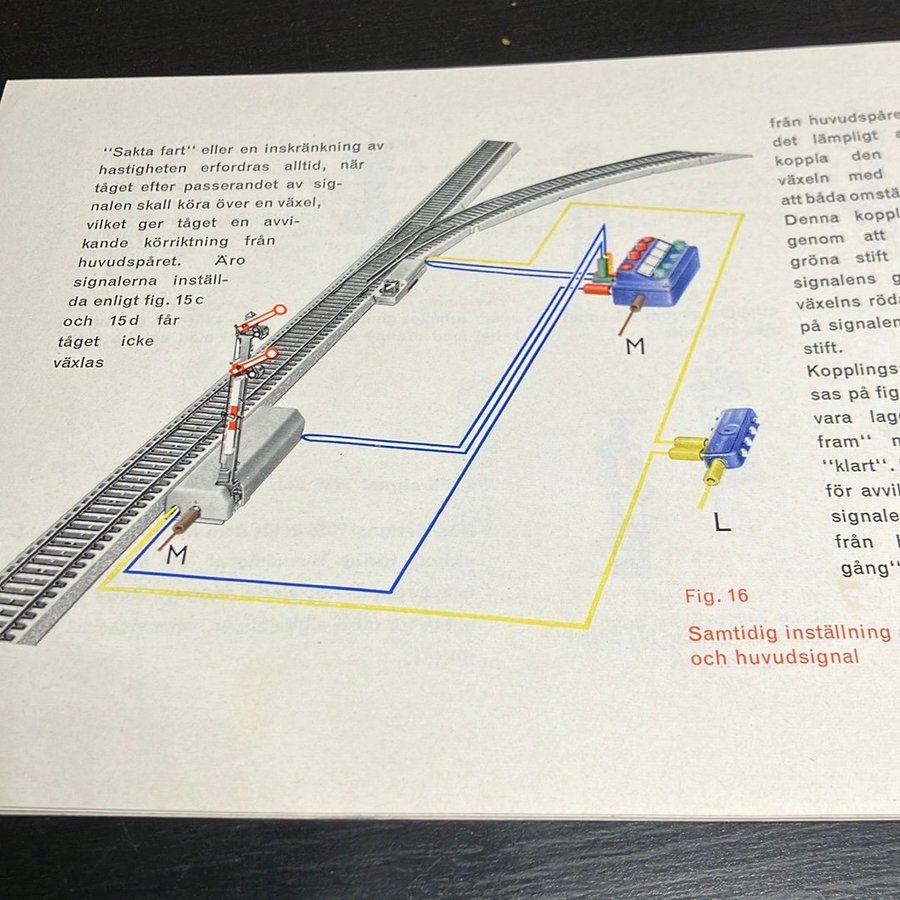 "Sakta fart" eller en inskränkning av
hastigheten erfordras alltid, när
tåget efter passerandet av sig-
nalen skall köra över en växel,
vilket ger tåget en avvi-
kande körriktning från
huvudspåret. Äro
signalerna inställ-
da enligt fig. 15 c
och 15 d får
tåget icke
växlas
M
M
L
från huvudspåre
det lämpligt
koppla den
växeln med
att båda omstä
Denna koppl
genom att
gröna stift
signalens g
växelns röda
på signalen
stift.
Kopplings
sas på fig
vara lage
fram" n
"klart".
för avvi
signale
från
gång"
Fig. 16
Samtidig inställning
och huvudsignal